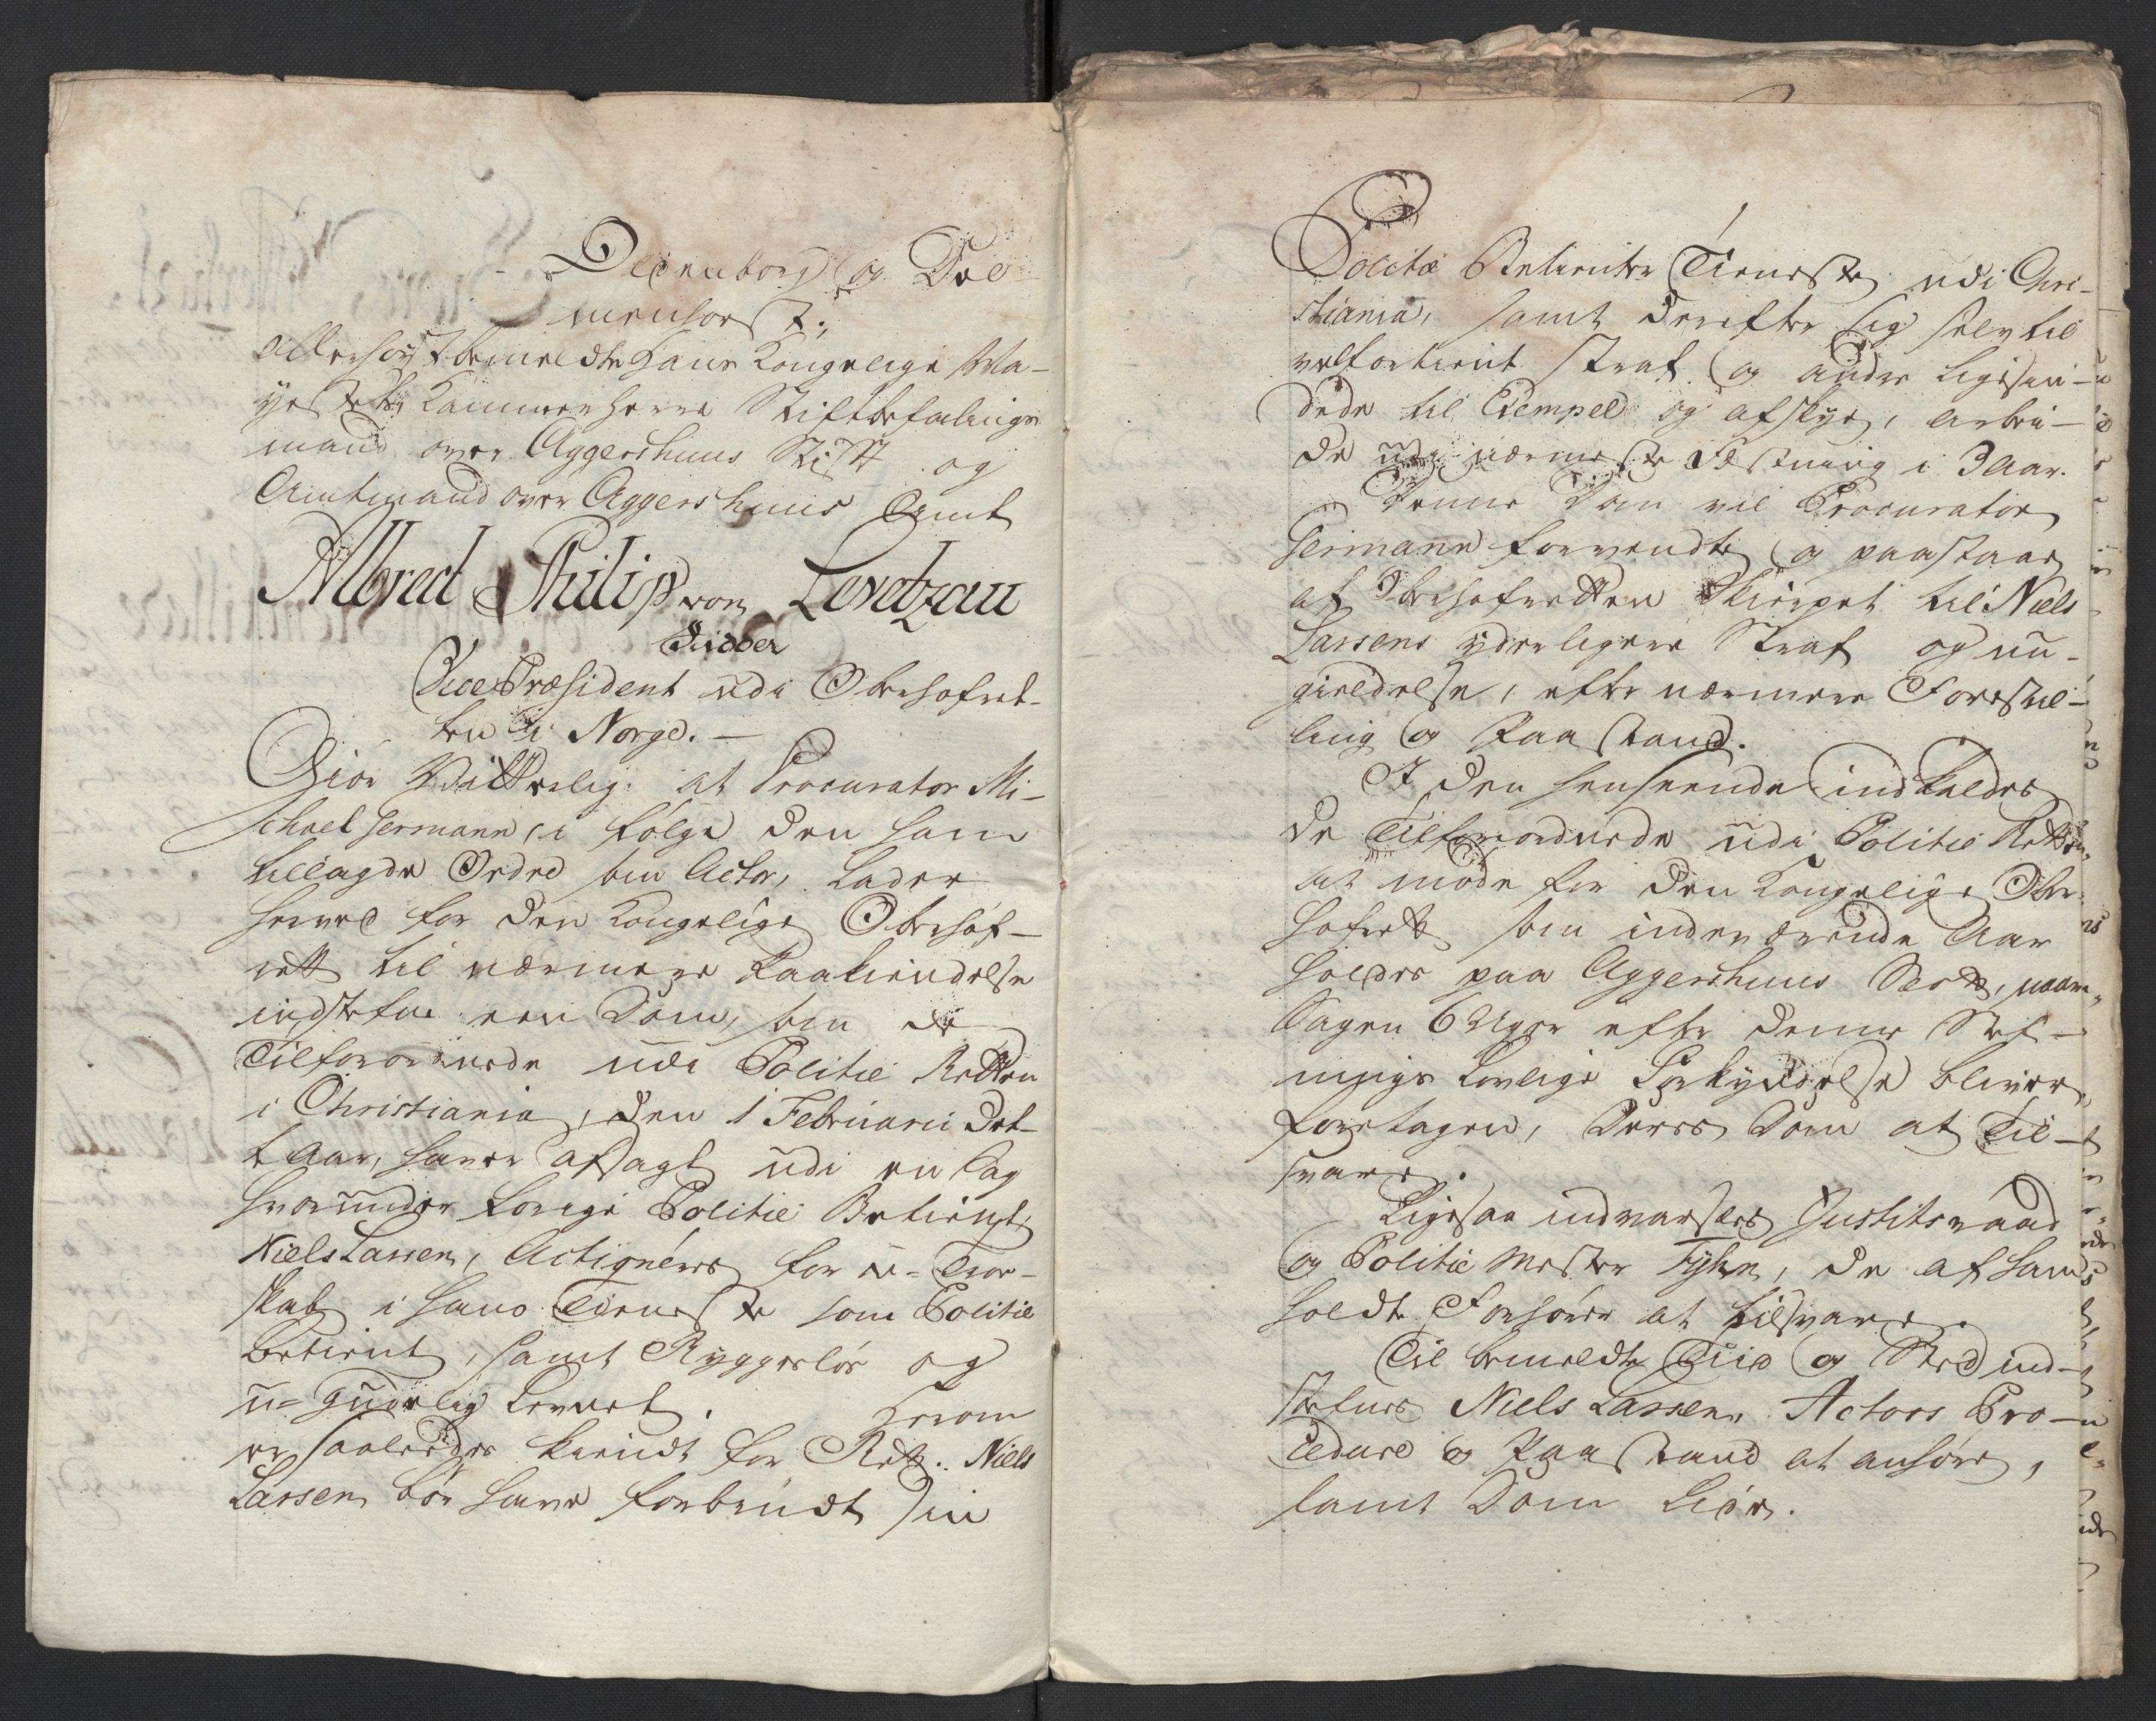 Oldenborg og Del-
menhorst;
Allerhøystbemeldte Hans Kongelige Ma-
yestets Kammerherre Stiftbefalings
mand over Aggershuus Stift og
Amtmand over Aggershuus Amt
Albrect Philip von Levetzau
Ridder
Vice Præsident udi Oberhofret-
ten i Norge. –
Giør Vitterlig: at Procurator Mi-
chael Hermann, i følge den ham
tillagde Ordre som Actor, lader
herved for den Kongelige Oberhof-
rett til nærmere Paakiendelse
indstefne een Dom, som de
Tilforordnede udi Politie Retten
i Christiania, den 1 Februarii det-
te Aar, haver afsagt udi en Sag
hvorunder forrige Politie Betient
Niels Larsen, Actigneres for u-Troe-
skab i hans Tieneste som Politie
Betient, samt Ryggesløs og
u-Gudelig Levnet. Herom
er saaledes kiendt for Rett. Niels
Larsen bør have forbrudt sin
Politie Betienter Tieneste udi Chri-
stiania, samt derefter sig selv til
velfortient Straf og andre ligesin-
dede til Exempel og afskye, arbei-
de udi nærmeste Fæstning i 3 Aar.
Denne Dom vil Procurator
Hermann forvendte og paastaae
af Oberhofretten skierpet til Niels
Larsens yderligere Straf og und-
gieldelse, efter nærmere Forestil-
ling og Paastand.
I den henseende indkaldes
de Tilforordnede udi Politie Retten,
at møde for den Kongelige Ober-
hofrett som indeværende Aar
holdes paa Aggershuus Slott, naar
Sagen 6 Uger efter denne Stef-
nings Lovlige Forkyndelse bliver
foretagen, deres Dom at Til-
svare.
Ligesaa indvarsles Justitsraad
og Politie Mester Fyhn, de af ham
holdte Forhører at tilsvare.
Til bemeldte Tiid og Sted ind-
stefnes Niels Larsen Actors Pro-
cedure og Paastand at anhøre,
samt Dom liide.